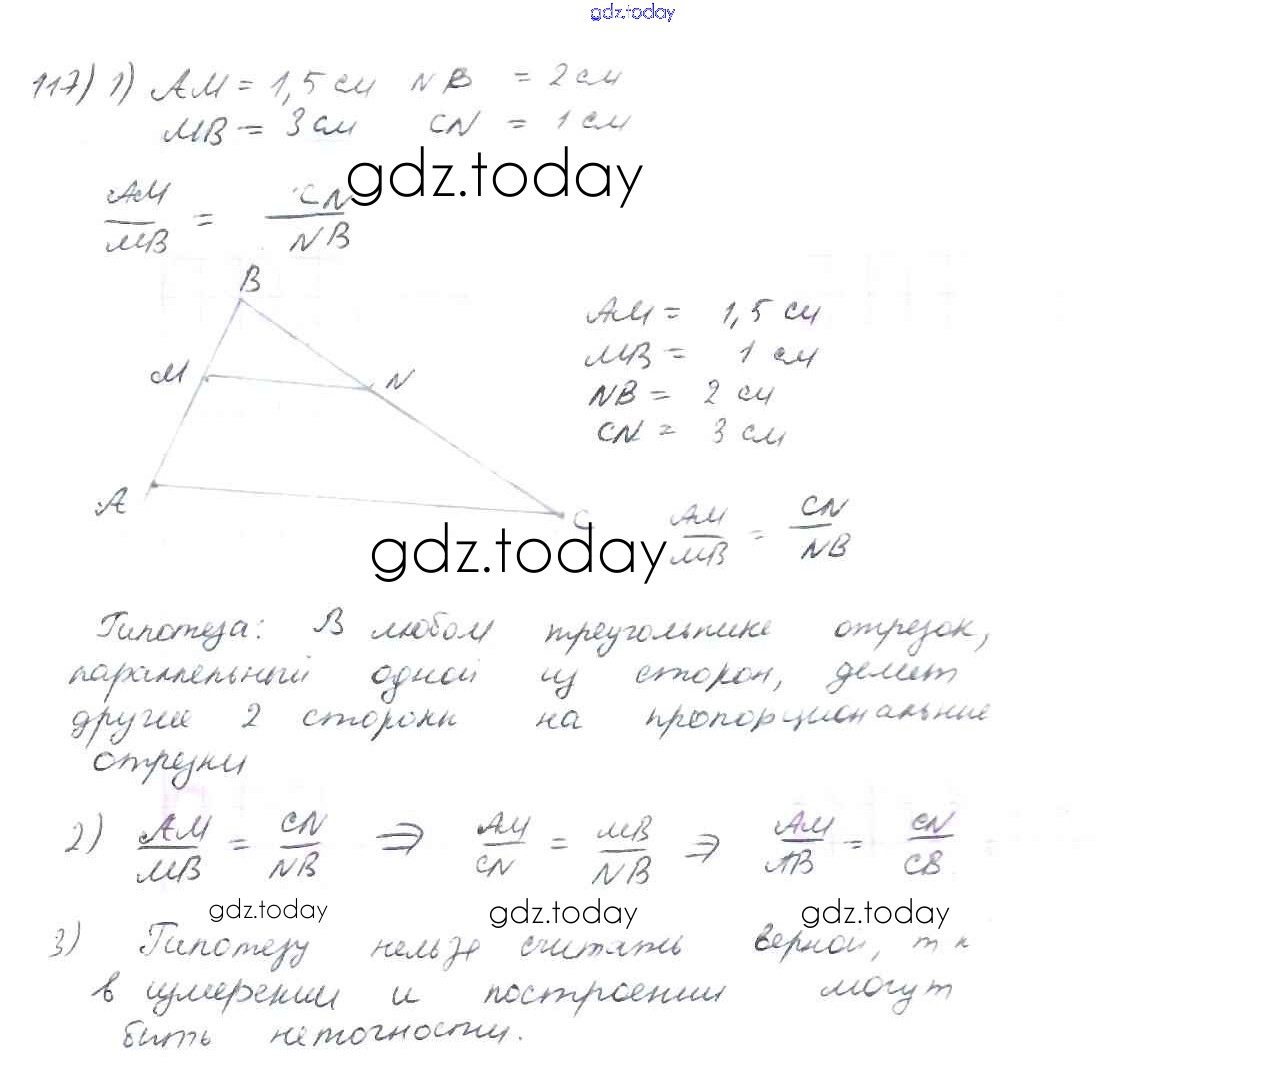 gdz.today
117) 1) AM = 1,5 см NB = 2 см
MB = 3 см CN = 1 см
gdz.today
AM/MB = CN/NB
B
M N
A C
AM = 1,5 см
MB = 1 см
NB = 2 см
CN = 3 см
AM/MB = CN/NB
gdz.today
Гипотеза: В любом треугольнике отрезок,
параллельный одной из сторон, делит
другие 2 стороны на пропорциональные
отрезки
2) AM/MB = CN/NB ⇒ AM/CN = MB/NB ⇒ AM/AB = CN/CB
gdz.today gdz.today gdz.today
3) Гипотезу нельзя считать верной, т к
в измерении и построении могут
быть неточности.